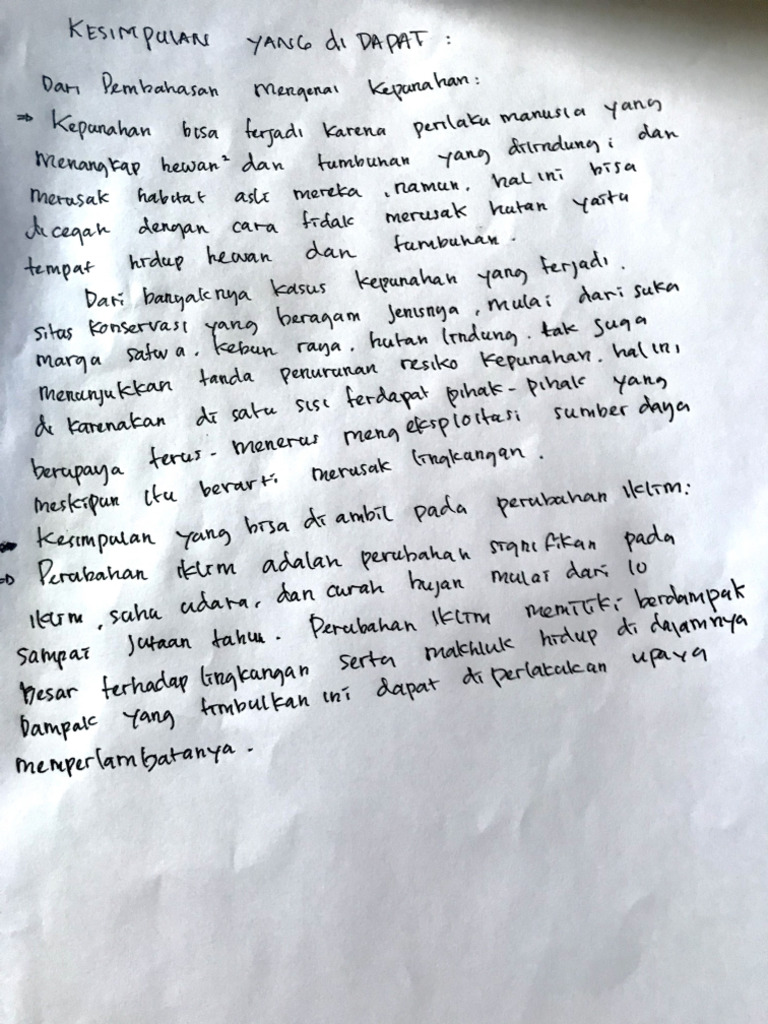 KESIMPULAN YANG di DAPAT :
Dari Pembahasan Mengenai Kepunahan:
⇒ Kepunahan bisa terjadi karena perilaku manusia yang
menangkap hewan² dan tumbuhan yang dilindungi dan
merusak habitat asli mereka, namun. hal ini bisa
dicegah dengan cara tidak merusak hutan yaitu
tempat hidup hewan dan tumbuhan.
Dari banyaknya kasus kepunahan yang terjadi.
situs konservasi yang beragam jenisnya, mulai dari suka
marga satwa. kebun raya. hutan lindung. tak juga
menunjukkan tanda penurunan resiko kepunahan. hal ini
di karenakan di satu sisi terdapat pihak-pihak yang
berupaya terus-menerus mengeksploitasi sumber daya
meskipun itu berarti merusak lingkangan.
Kesimpulan yang bisa di ambil pada perubahan iklim:
⇒ Perubahan iklim adalah perubahan signifikan pada
iklim, suhu udara, dan curah hujan mulai dari 10
sampai jutaan tahun. Perubahan iklim memiliki berdampak
besar terhadap lingkangan serta makhluk hidup di dalamnya
Dampak yang timbulkan ini dapat di perlakukan upaya
memperlambatanya.